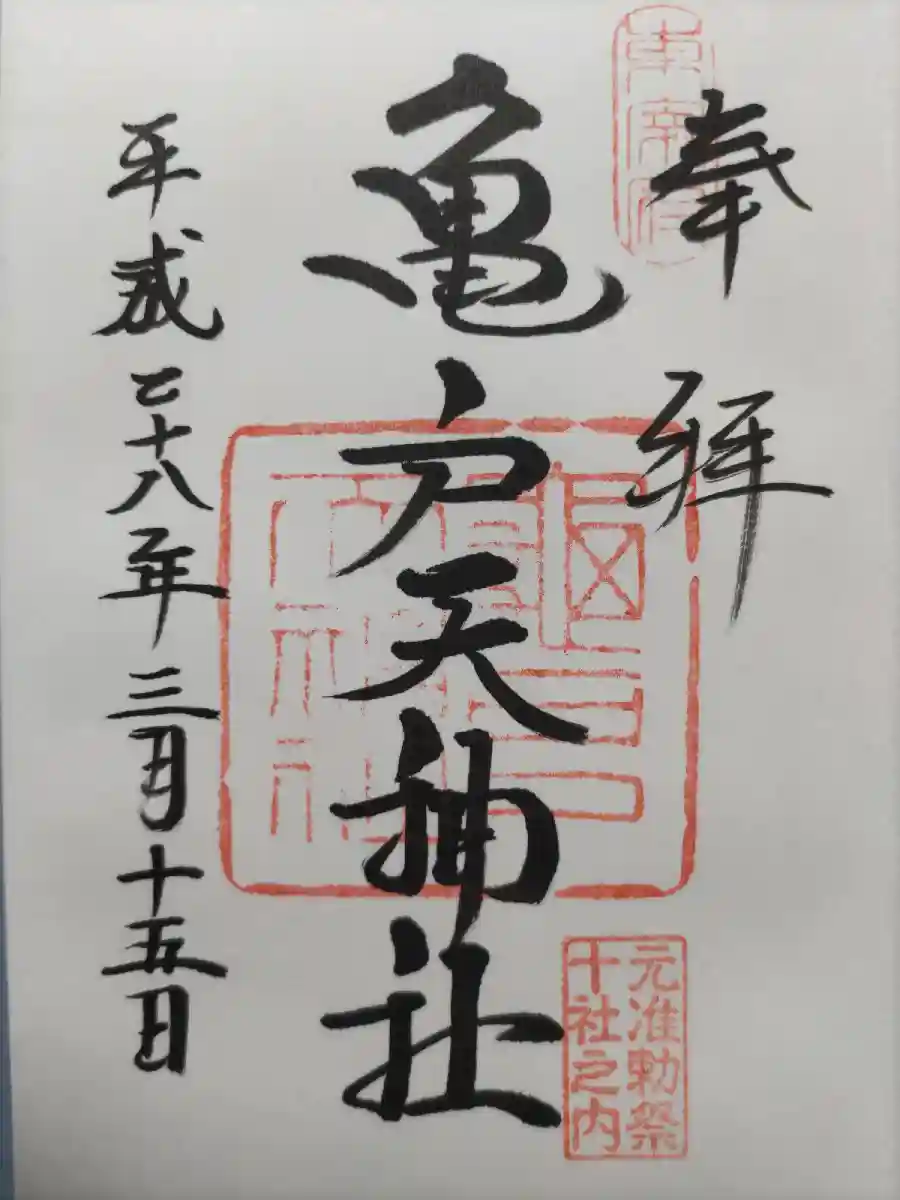 東宰府
奉拝
元准勅祭
十社之内
亀戸天神社
平成二十八年三月十五日